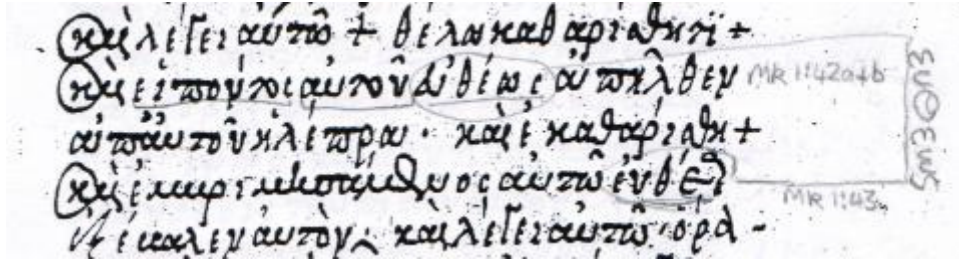 καὶ λέγει αὐτῶ + θέλω καθαρίσθητϊ +
καὶ εἰπόντος αὐτοῦ εὐθέως ἀπῆλθεν
ἀπ' αὐτοῦ ἡ λέπρα · καὶ ἐκαθαρίσθη +
καὶ ἐμβριμησάμενος αὐτῶ εὐθέως
ἐξέβαλεν αὐτὸν, καὶ λέγει αὐτῶ · ὅρα -
MK 1:42a+b
MK 1:43
ευθεως